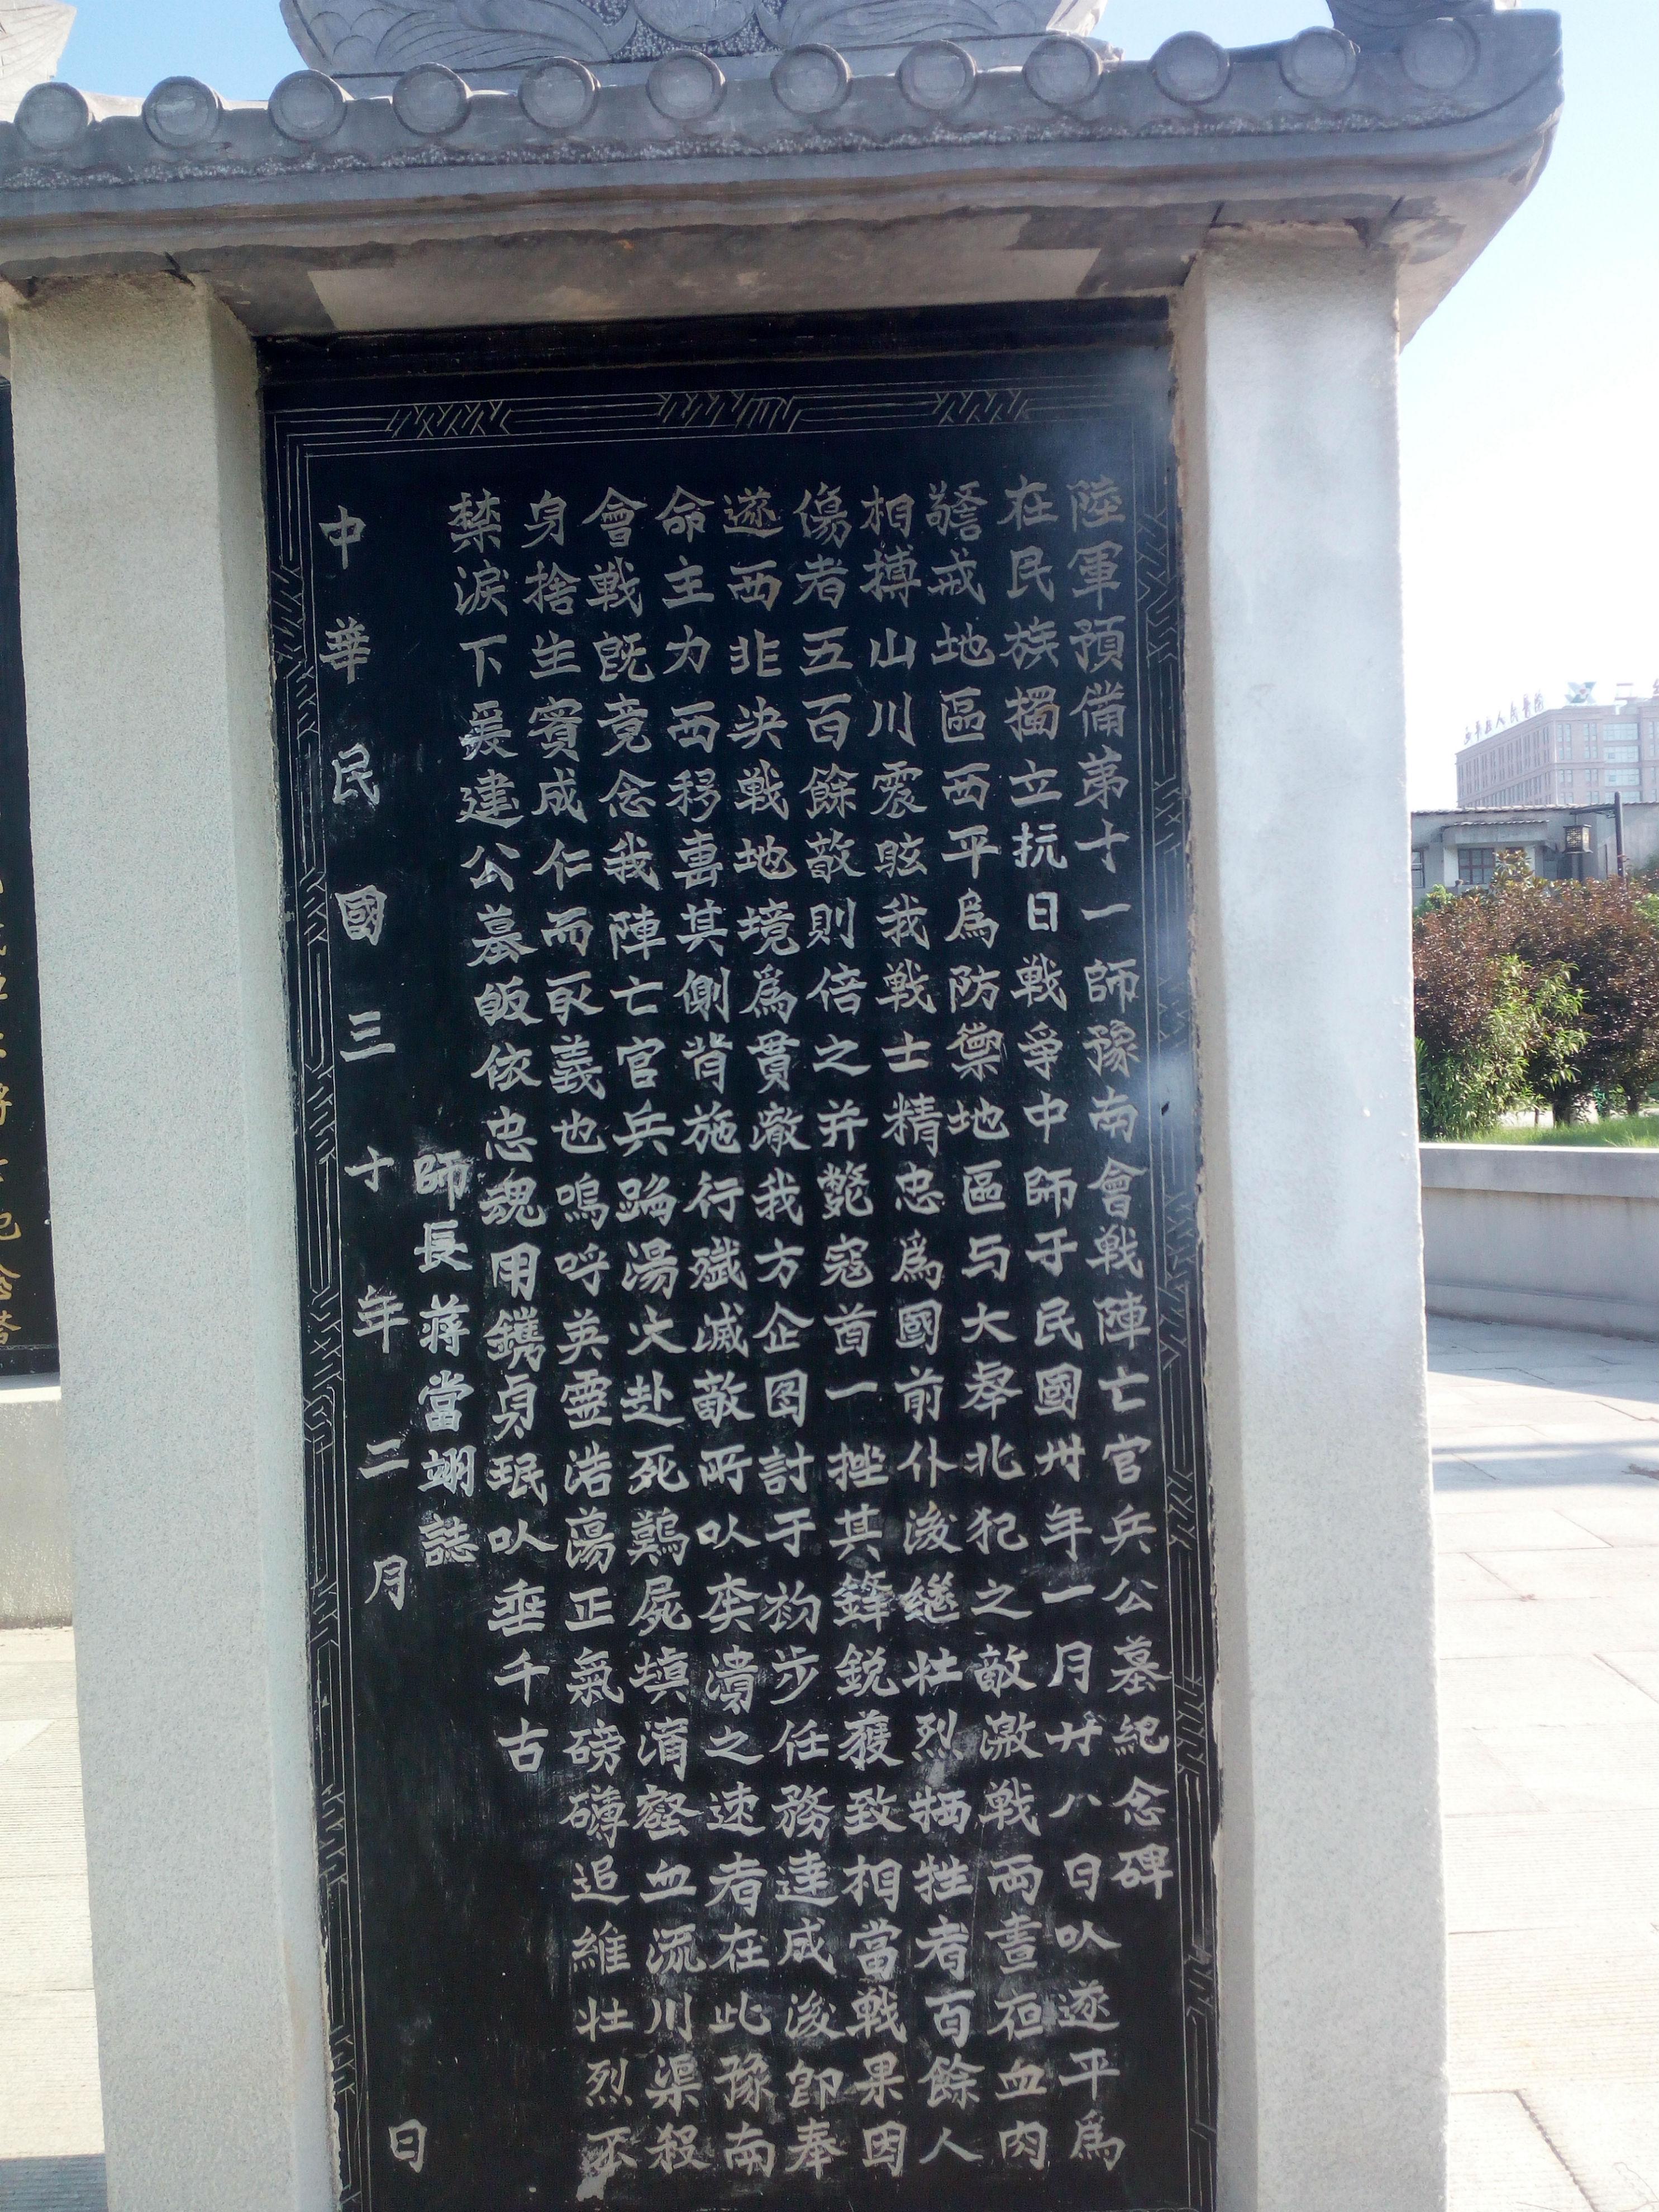 陸軍預備第十一師豫南會戰陣亡官兵公墓紀念碑
在民族獨立抗日戰爭中師于民國卅年一月廿八日以遂平爲
警戒地區西平爲防禦地區与大舉北犯之敵激戰兩晝夜血肉
相搏山川震眩我戰士精忠爲國前仆後繼壯烈犧牲者百餘人
傷者五百餘敵則倍之并斃寇酋一挫其鋒銳獲致相當戰果因
遂西北決戰地境爲貫澈我方企图討于初步任務達成後即奉
命主力西移専其側背施行殲滅敵所以奔潰之速者在此豫南
會戰既竟念我陣亡官兵蹈湯火赴死鬭屍填濱壑血流川渠殺
身捨生實成仁而取義也嗚呼英靈浩蕩正氣磅礴追維壯烈不
禁淚下爰建公墓皈依忠魂用鐫貞珉以垂千古
師長蔣當翊誌
中華民國三十年二月 日